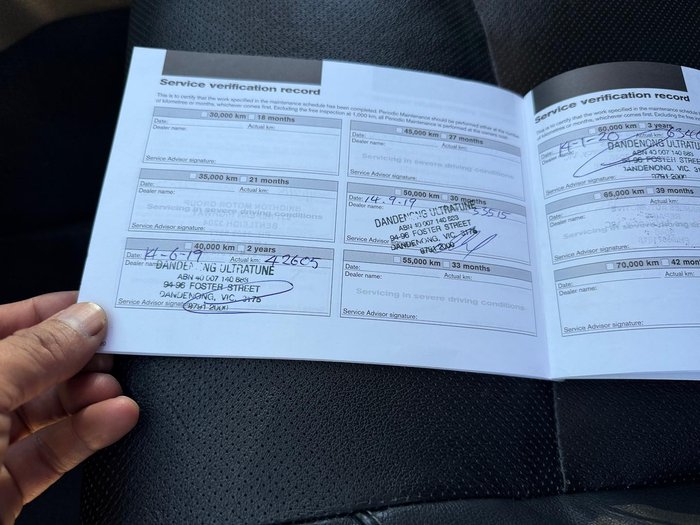 Service verification record
This is to certify that the work specified in the maintenance schedule has been completed. Periodic Maintenance should be performed either at the number
of kilometres or months, whichever comes first. Excluding the free inspection at 1,000 km, all Periodic Maintenance is performed at the normal
30,000 km 18 months
Date: Actual km:
Dealer name:
Service Advisor signature:
35,000 km 21 months
Date: Actual km:
Dealer name:
Servicing in severe driving conditions
Service Advisor signature:
40,000 km 2 years
Date: 14-6-19 Actual km: 42605
Dealer name:
DANDENONG ULTRATUNE
ABN 40 007 140 883
94-96 FOSTER STREET
DANDENONG, VIC, 3175
Service Advisor signature: 9791-2000
45,000 km 27 months
Date: Actual km:
Dealer name:
Servicing in severe driving conditions
Service Advisor signature:
50,000 km 30 months
Date: 14.9.19 53515
Dealer name:
DANDENONG ULTRATUNE
ABN 40 007 140 883
94-96 FOSTER STREET
DANDENONG, VIC, 3175
9791-2000
55,000 km 33 months
Date: Actual km:
Dealer name:
Servicing in severe driving conditions
Service Advisor signature:
Service verification record
This is to certify that the work specified in the maintenance schedule
of kilometres or months, whichever comes first. Excluding the free
60,000 km 3 years
Date: 14-1-20 Actual km:
DANDENONG ULTRATUNE
ABN 40 007 140 883
94-96 FOSTER STREET
DANDENONG, VIC, 3175
9791-2000
65,000 km 39 months
Date: Actual km:
Dealer name:
Servicing in severe
Service Advisor signature:
70,000 km 42
Date: Actual km:
Dealer name:
Service Advisor signature: